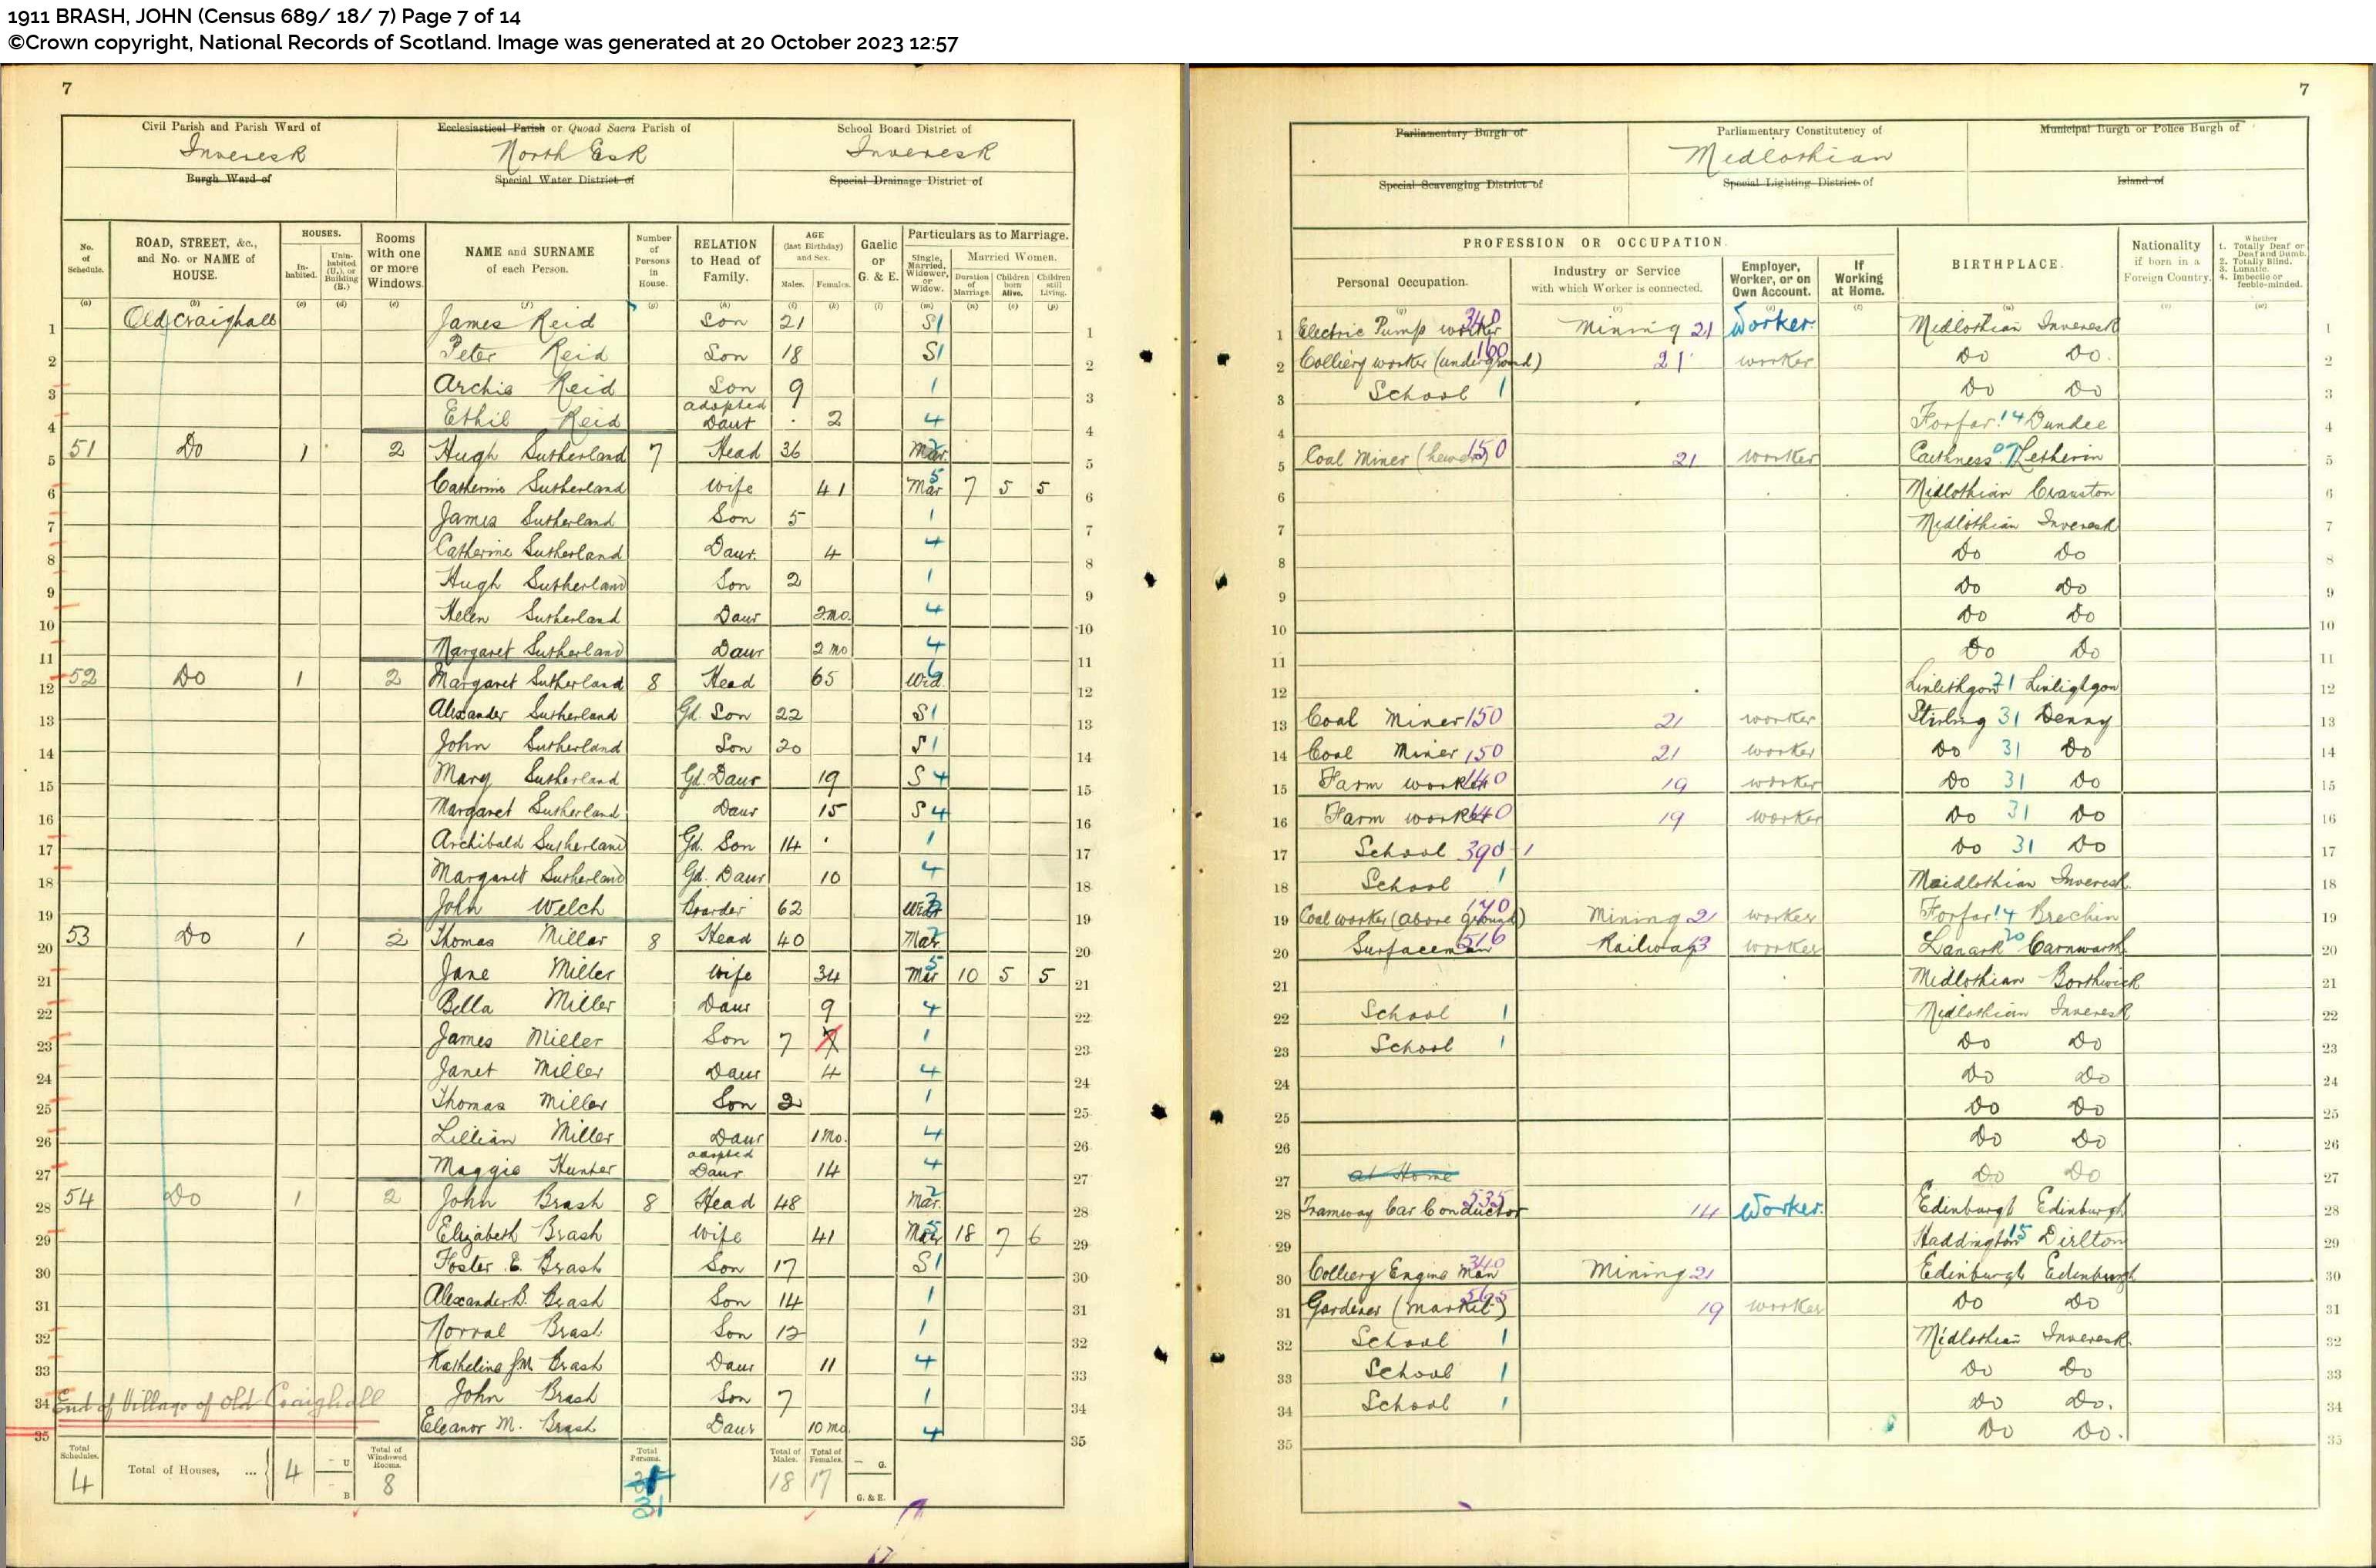 1911 BRASH, JOHN (Census 689/ 18/ 7) Page 7 of 14
©Crown copyright, National Records of Scotland. Image was generated at 20 October 2023 12:57
7
Civil Parish and Parish Ward of Ecclesiastical Parish or Quoad Sacra Parish of School Board District of
Inveresk North Esk Inveresk
Burgh Ward of Special Water District of Special Drainage District of
No. of Schedule. ROAD, STREET, &c., and No. or NAME of HOUSE. HOUSES. Inhabited. Uninhabited (U.), or Building (B.) Rooms with one or more Windows. NAME and SURNAME of each Person. Number of Persons in House. RELATION to Head of Family. AGE (last Birthday) and Sex. Males. Females. Gaelic or G. & E. Particulars as to Marriage. Single, Married, Widower, or Widow. Married Women. Duration of Marriage. Children born Alive. Children still Living.
(a) (b) (c) (d) (e) (f) (g) (h) (i) (k) (l) (m) (n) (o) (p)
1 Old Craighall James Reid Son 21 S 1 1
2 Peter Reid Son 18 S 1 2
3 Archie Reid Son 9 1 3
4 Ethil Reid adopted Daur 2 4 4
5 51 Do 1 2 Hugh Sutherland 7 Head 36 Mar. 2 5
6 Catherine Sutherland Wife 41 Mar 5 7 5 5 6
7 James Sutherland Son 5 1 7
8 Catherine Sutherland Daur. 4 4 8
9 Hugh Sutherland Son 2 1 9
10 Helen Sutherland Daur 2 mo. 4 10
11 Margaret Sutherland Daur 2 mo 4 11
12 52 Do 1 2 Margaret Sutherland 8 Head 65 Wid. 6 12
13 Alexander Sutherland Gd. Son 22 S 1 13
14 John Sutherland Son 20 S 1 14
15 Mary Sutherland Gd. Daur 19 S 4 15
16 Margaret Sutherland Daur 15 S 4 16
17 Archibald Sutherland Gd. Son 14 1 17
18 Margaret Sutherland Gd. Daur 10 4 18
19 John Welch Boarder 62 Widr 3 19
20 53 Do 1 2 Thomas Miller 8 Head 40 Mar. 2 20
21 Jane Miller Wife 34 Mar 5 10 5 5 21
22 Bella Miller Daur 9 4 22
23 James Miller Son 7 7 1 23
24 Janet Miller Daur 4 4 24
25 Thomas Miller Son 2 1 25
26 Lillian Miller Daur 1 Mo. 4 26
27 Maggie Hunter adopted Daur. 14 4 27
28 54 Do 1 2 John Brash 8 Head 48 Mar. 2 28
29 Elizabeth Brash Wife 41 Mar 5 18 7 6 29
30 Foster E. Brash Son 17 S 1 30
31 Alexander B. Brash Son 14 1 31
32 Norval Brash Son 12 1 32
33 Brash Daur 11 4 33
34 End of Village of Old Craighall John Brash Son 7 1 34
35 Eleanor M. Brash Daur 10 mo. 4 35
Total Schedules. 4 Total of Houses, ... 4 – U – B Total of Windowed Rooms. 8 Total Persons. 31 Total of Males. 18 Total of Females. 17 – G. G. & E.
7
Parliamentary Burgh of Parliamentary Constitutency of Municipal Burgh or Police Burgh of
Midlothian
Special Scavenging District of Special Lighting District of Island of
PROFESSION OR OCCUPATION. Personal Occupation. Industry or Service with which Worker is connected. Employer, Worker, or on Own Account. If Working at Home. BIRTHPLACE. Nationality if born in a Foreign Country. Whether 1. Totally Deaf or Deaf and Dumb. 2. Totally Blind. 3. Lunatic. 4. Imbecile or feeble-minded.
1 Electric Pump worker 340 Mining 21 Worker. Midlothian Inveresk 1
2 Colliery worker (underground) 160 21 worker Do Do. 2
3 School 1 Do Do 3
4 Forfar 14 Dundee 4
5 Coal Miner (hewer) 150 21 worker Caithness 07 5
6 Midlothian Cranston 6
7 Midlothian Inveresk 7
8 Do Do 8
9 Do Do 9
10 Do Do 10
11 Do Do 11
12 Linlithgow 21 Linlighgow 12
13 Coal Miner 150 21 worker Stirling 31 Denny 13
14 Coal Miner 150 21 worker Do 31 Do 14
15 Farm worker 140 19 worker Do 31 Do 15
16 Farm worker 140 19 worker Do 31 Do 16
17 School 390 1 Do 31 Do 17
18 School 1 Midlothian Inveresk 18
19 Coal worker (above ground) 170 Mining 21 worker Forfar 14 Brechin 19
20 Surfaceman 516 Railway 13 worker Lanark 20 Carnwarth 20
21 Midlothian Borthwick 21
22 School 1 Midlothian Inveresk 22
23 School 1 Do Do 23
24 Do Do 24
25 Do Do 25
26 Do Do 26
27 at Home Do Do 27
28 Tramway Car Conductor 535 14 Worker. Edinburgh Edinburgh 28
29 Haddington 15 Dirlton 29
30 Colliery Engine Man 340 Mining 21 Edinburgh Edinburgh 30
31 Gardener (Market) 565 19 worker Do Do 31
32 School 1 Midlothian Inveresk 32
33 School 1 Do Do 33
34 School 1 Do Do. 34
35 Do Do. 35